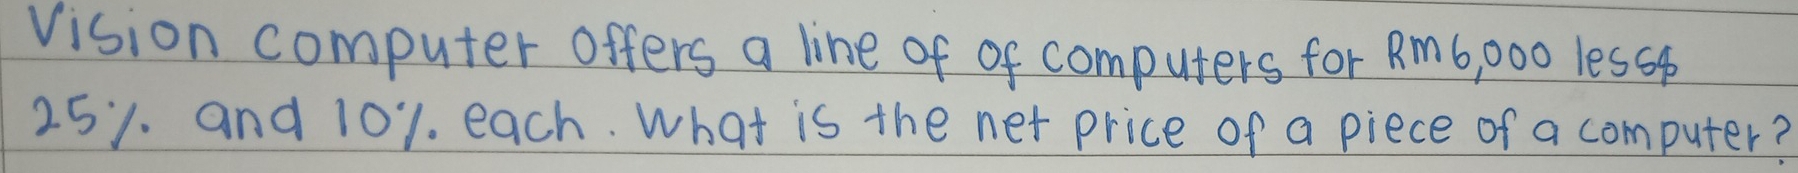 Vision computer offers a line of of computers for Rm6,000 less
25% and 10% each. What is the net price of a piece of a computer?